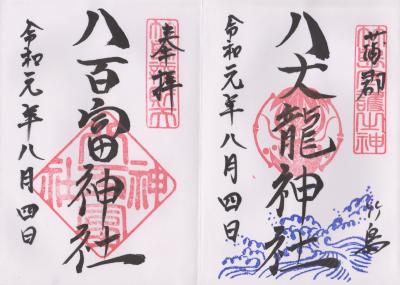 蒲郡
八大龍神社
竹島
令和元年八月四日
奉拝
八百富神社
令和元年八月四日